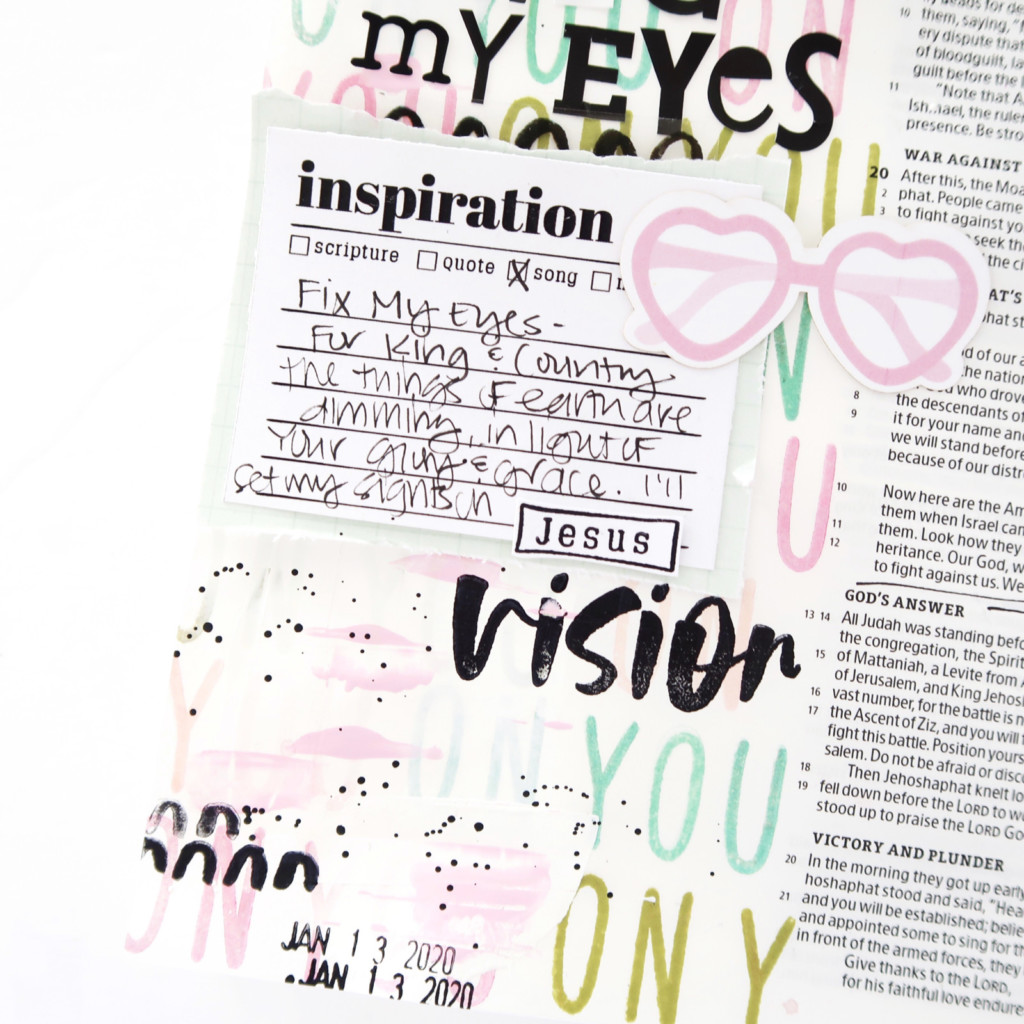 MY EYES
inspiration
scripture quote song
Fix My Eyes -
For King & Country
The things of earth are
dimming, in light of
Your glory & grace. I'll
set my sights on
Jesus
vision
ON YOU
ON
ON Y
JAN 13 2020
JAN 13 2020
10 them, saying,
ery dispute that
of bloodguilt,
guilt before the
11 "Note that
the ruler
presence. Be
WAR AGAINST
20 After this, the
2 phat. People came
3 to fight against
seek
the
of our
the
who drove
8 the descendants of
9 it for your name and
we will stand before
because of our
10 Now here are the
11 them when Israel
12 them. Look how they
heritance. Our God,
to fight against us. We
GOD'S ANSWER
13 14 All Judah was standing
the congregation, the
15 of Mattaniah, a Levite from
of Jerusalem, and King
16 vast number, for the battle is
17 the Ascent of Ziz, and you will
fight this battle. Position
salem. Do not be afraid or
18 Then Jehoshaphat knelt
19 fell down before the LORD to
stood up to praise the LORD
VICTORY AND PLUNDER
20 In the morning they got up
hoshaphat stood and said,
21 and you will be established;
and appointed some to sing for
in front of the armed forces,
Give thanks to the LORD,
for his faithful love